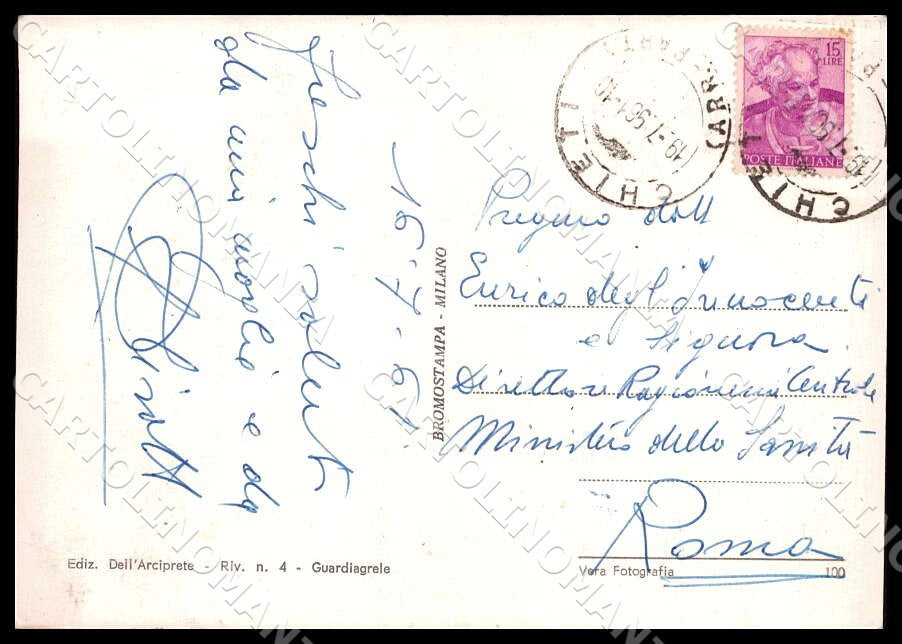 16-7-61
Freschi saluti
da mia moglie e da
15
LIRE
POSTE ITALIANE
CHIETI
(ARR.
19-7
CHIETI
Pregmo dott
Enrico degl'Innocenti
e Signora
Direttore Ragioneria Centrale
Ministero della Sanità
Roma
BROMOSTAMPA - MILANO
Ediz. Dell'Arciprete - Riv. n. 4 - Guardiagrele
Vera Fotografia
100
CARTOLINOMANIA